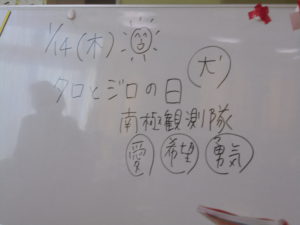 1/14(木)
犬
タロとジロの日
南極観測隊
愛 希望 勇気